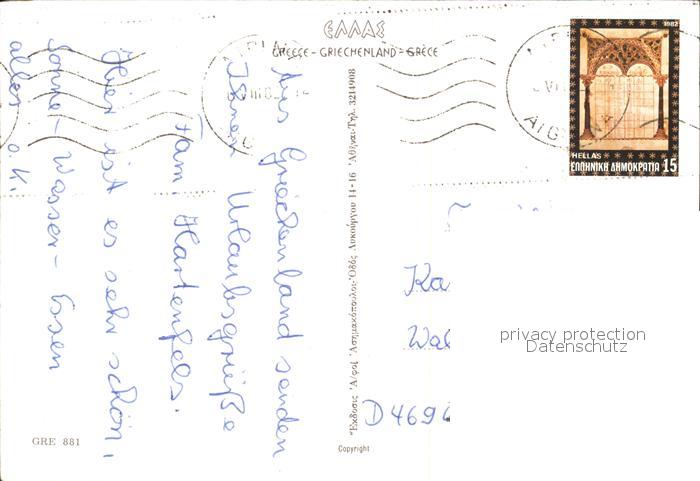 ΕΛΛΑΣ
GREECE - GRIECHENLAND - GRÈCE
Aus Griechenland senden
Ihnen Urlaubsgrüße
Fam. Hartenfels.
Hier ist es sehr schön,
Sonne - Wasser - Essen
alles o.k.
GRE 881
Ἔκδοσις Ἀ/φοί Ἀσημακόπουλοι-Ὁδὸς Λυκούργου 14-16 Ἀθῆναι-Τηλ. 3214908
Copyright
1982
HELLAS
ΕΛΛΗΝΙΚΗ ΔΗΜΟΚΡΑΤΙΑ 15
Ka
Wal
D 469
privacy protection
Datenschutz